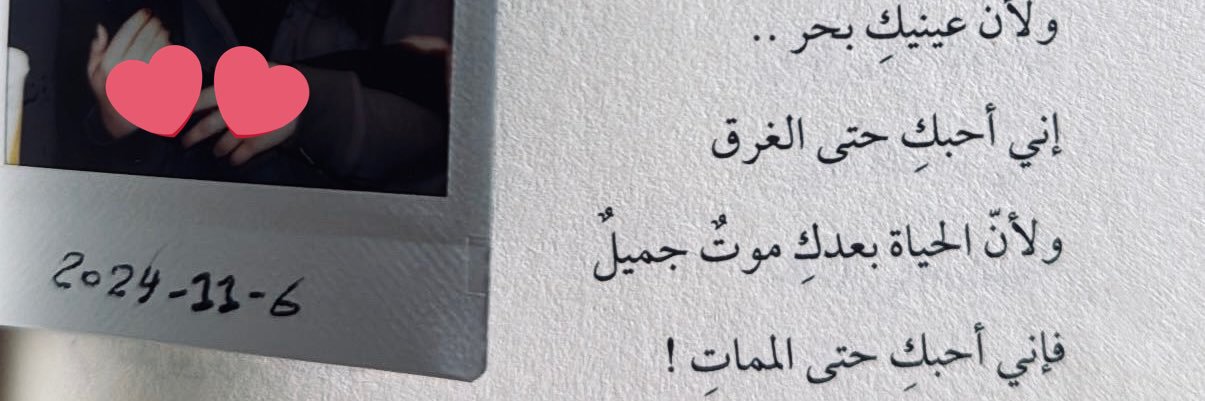 ولأن عينيكِ بحر ..
إني أحبكِ حتى الغرق
ولأنّ الحياة بعدكِ موتٌ جميلٌ
فإني أحبكِ حتى المماتِ !
2024-11-6